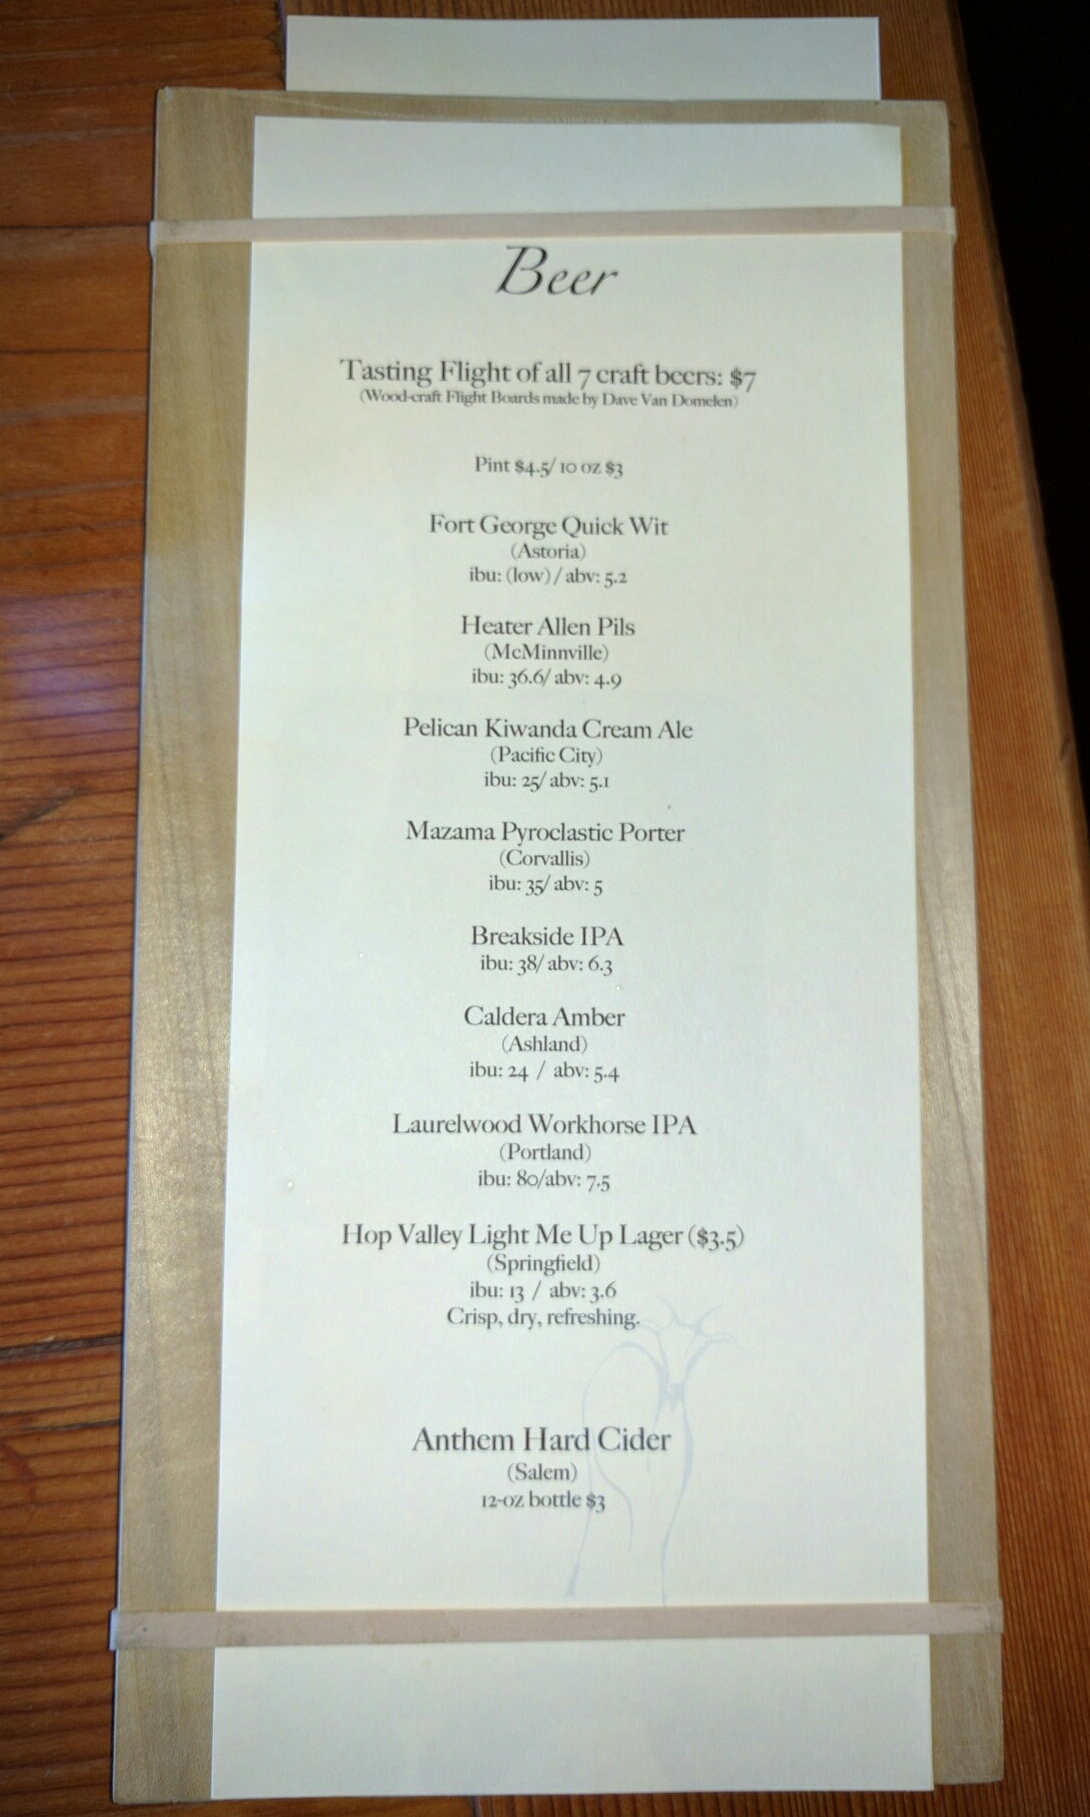 Beer
Tasting Flight of all 7 craft beers: $7
(Wood-craft Flight Boards made by Dave Van Domelen)
Pint $4.5/ 10 oz $3
Fort George Quick Wit
(Astoria)
ibu: (low) / abv: 5.2
Heater Allen Pils
(McMinnville)
ibu: 36.6/ abv: 4.9
Pelican Kiwanda Cream Ale
(Pacific City)
ibu: 25/ abv: 5.1
Mazama Pyroclastic Porter
(Corvallis)
ibu: 35/ abv: 5
Breakside IPA
ibu: 38/ abv: 6.3
Caldera Amber
(Ashland)
ibu: 24 / abv: 5.4
Laurelwood Workhorse IPA
(Portland)
ibu: 80/abv: 7.5
Hop Valley Light Me Up Lager ($3.5)
(Springfield)
ibu: 13 / abv: 3.6
Crisp, dry, refreshing.
Anthem Hard Cider
(Salem)
12-oz bottle $3